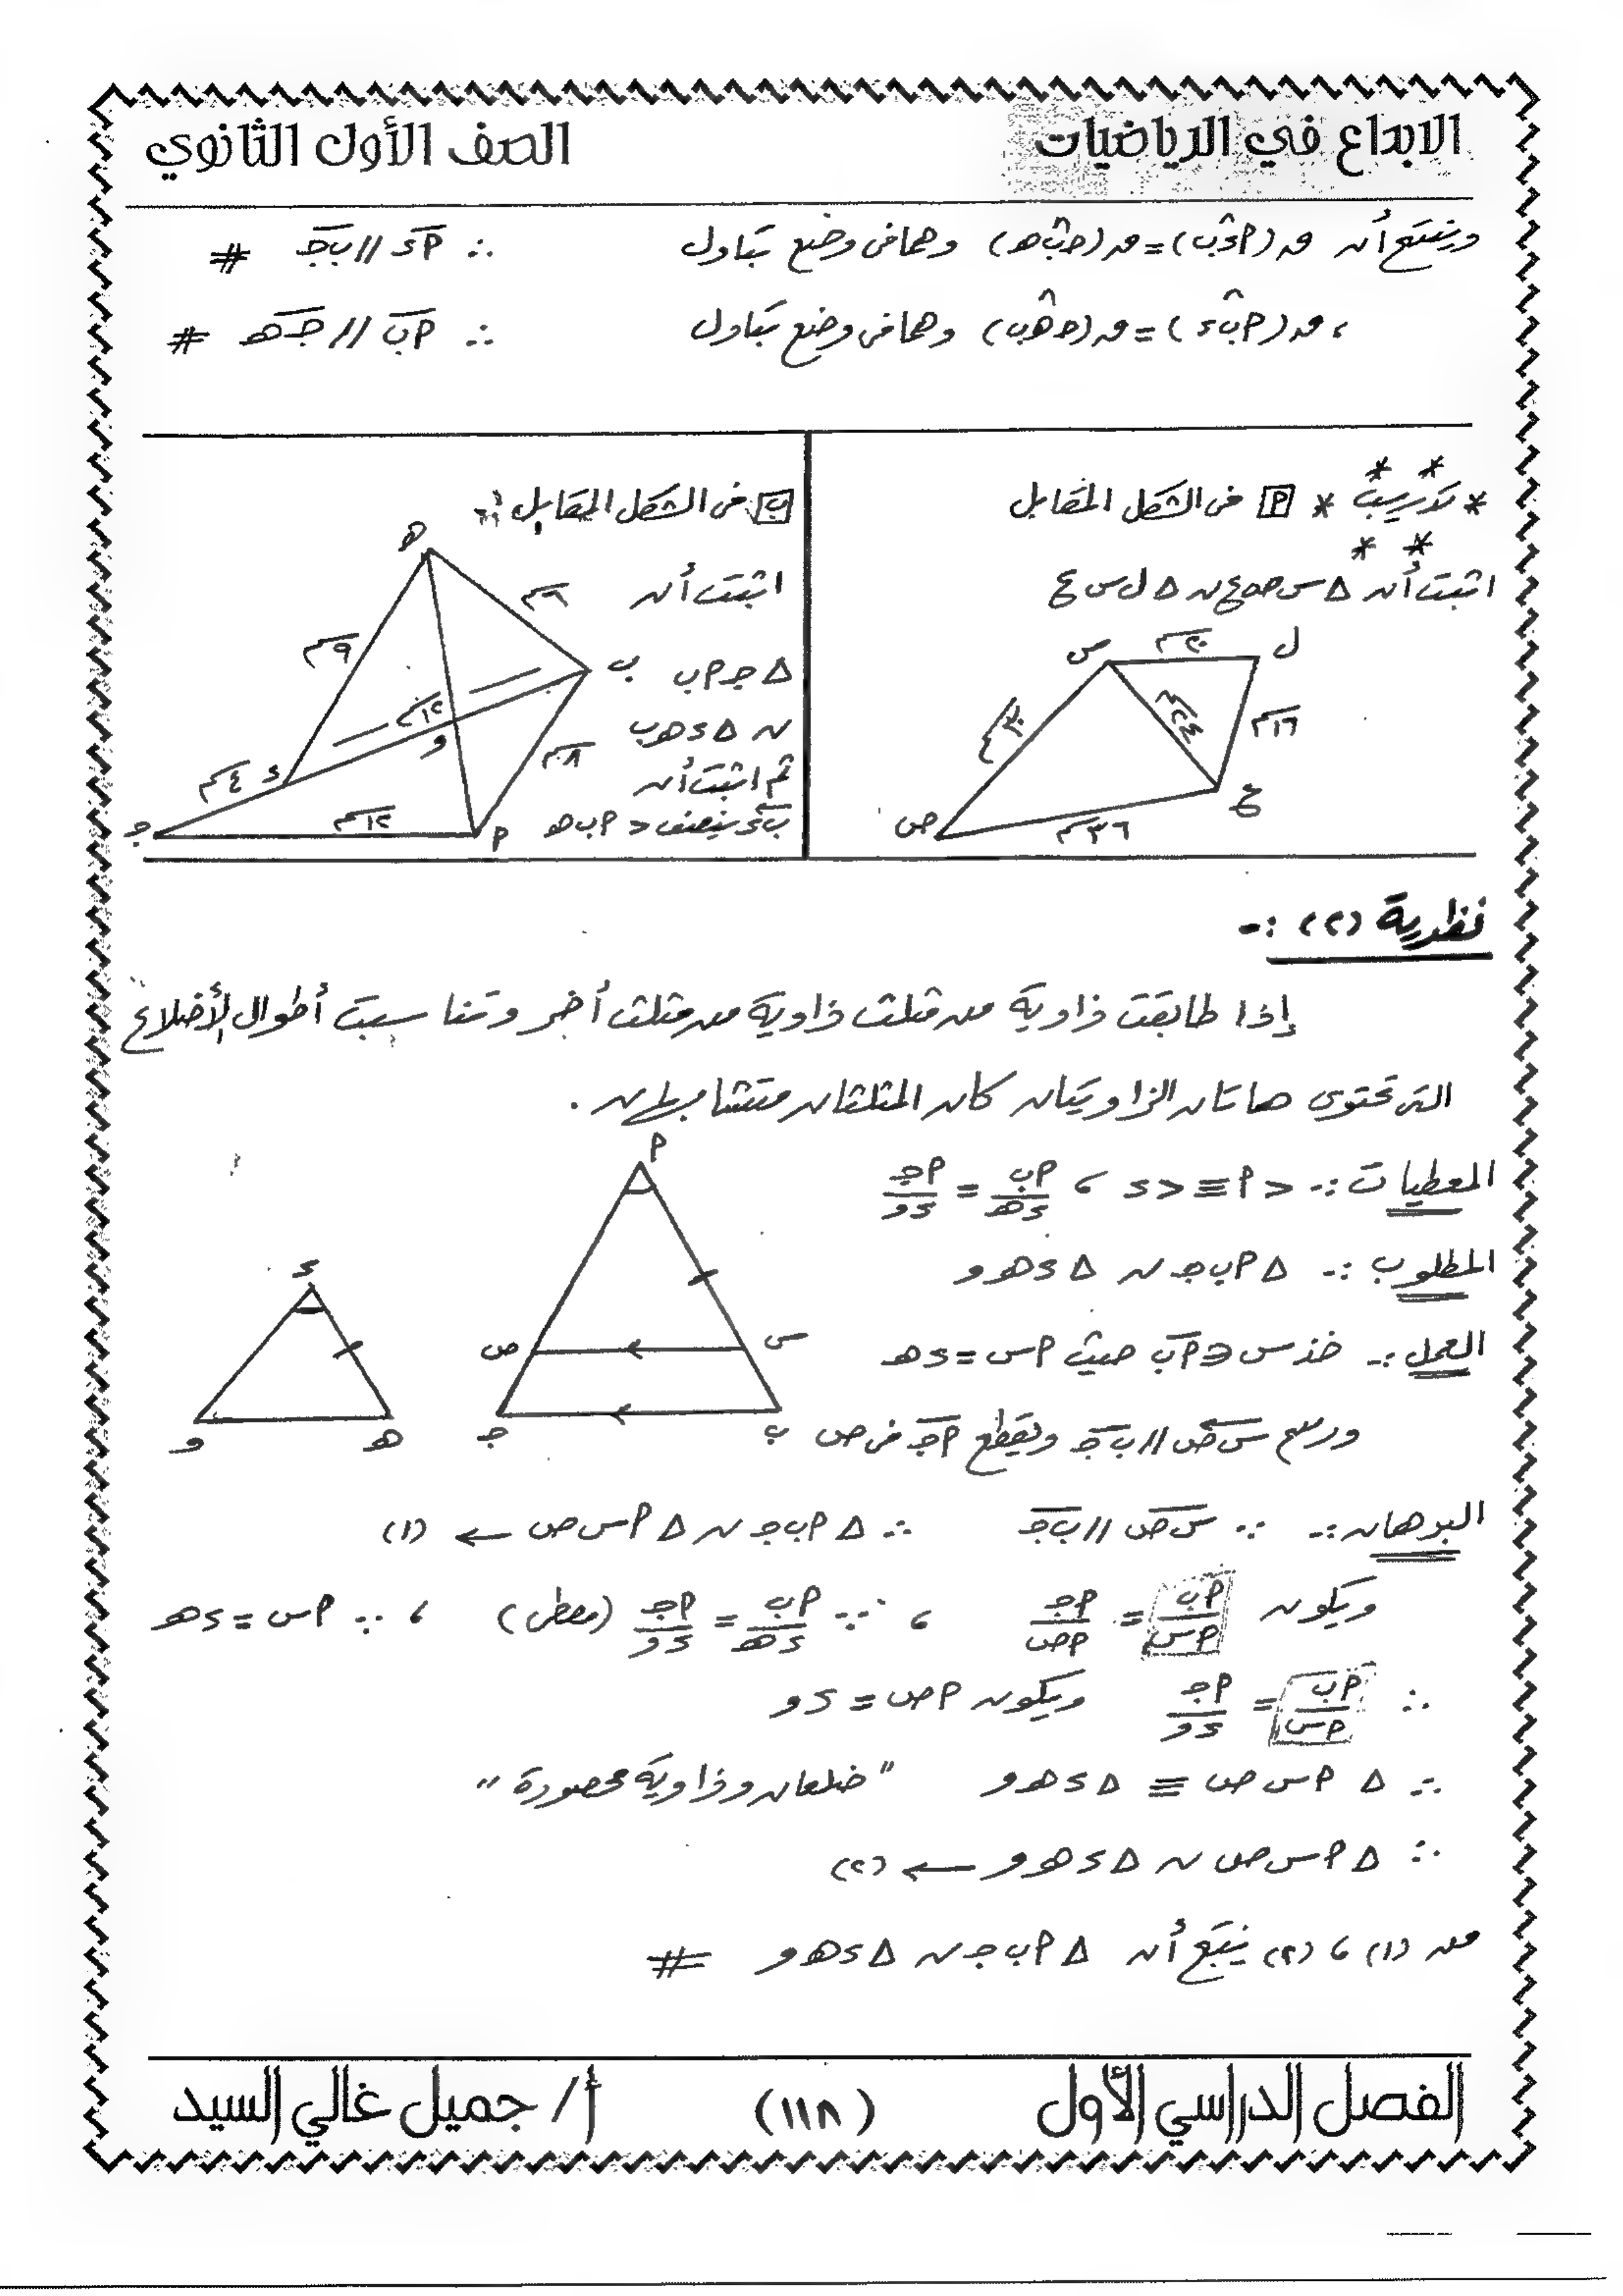 الابداع في الرياضيات
الصف الأول الثانوي
وينتج أن ق(أءَب) = ق(جبَه) وهما فى وضع تبادل ∴ أء // بج #
، ق(أبَء) = ق(جهَب) وهما فى وضع تبادل ∴ أب // جه #
* تدريب * أ فى الشكل المقابل
اثبت أن Δ س ص ع ~ Δ ل س ع
ل
س
٢٠سم
١٦سم
٢٤سم
٣٠سم
ع
ص
٣٦سم
ب فى الشكل المقابل :
اثبت أن
Δ ج أ ب
~ Δ ء ه ب
ثم اثبت أن
بء ينصف > أ ب ه
ه
٦سم
٩سم
ب
١٢سم
و
٨سم
ء
٤سم
ج
١٢سم
أ
نظرية (٢) :-
إذا طابقت زاوية من مثلث زاوية من مثلث أخر وتناسبت أطوال الأضلاع
التى تحتوى هاتان الزاويتان كان المثلثان متشابهان .
المعطيات :- > أ ≡ > ء ، أب/ءه = أج/ءو
المطلوب :- Δ أ ب ج ~ Δ ء ه و
العمل :- خذ س ∈ أب حيث أس = ءه
ورسم س ص // بج ويقطع أج فى ص
أ
س
ص
ب
ج
ء
ه
و
البرهان :- ∵ س ص // بج ∴ Δ أ ب ج ~ Δ أ س ص ← (١)
ويكون أب/أس = أج/أص ، ∵ أب/ءه = أج/ءو (معطى) ، ∵ أس = ءه
∴ أب/أس = أج/ءو ويكون أص = ءو
∴ Δ أ س ص ≡ Δ ء ه و " ضلعان وزاوية محصورة "
∴ Δ أ س ص ~ Δ ء ه و ← (٢)
من (١) ، (٢) ينتج أن Δ أ ب ج ~ Δ ء ه و #
الفصل الدراسي الأول
(١١٨)
أ/ جميل غالي السيد